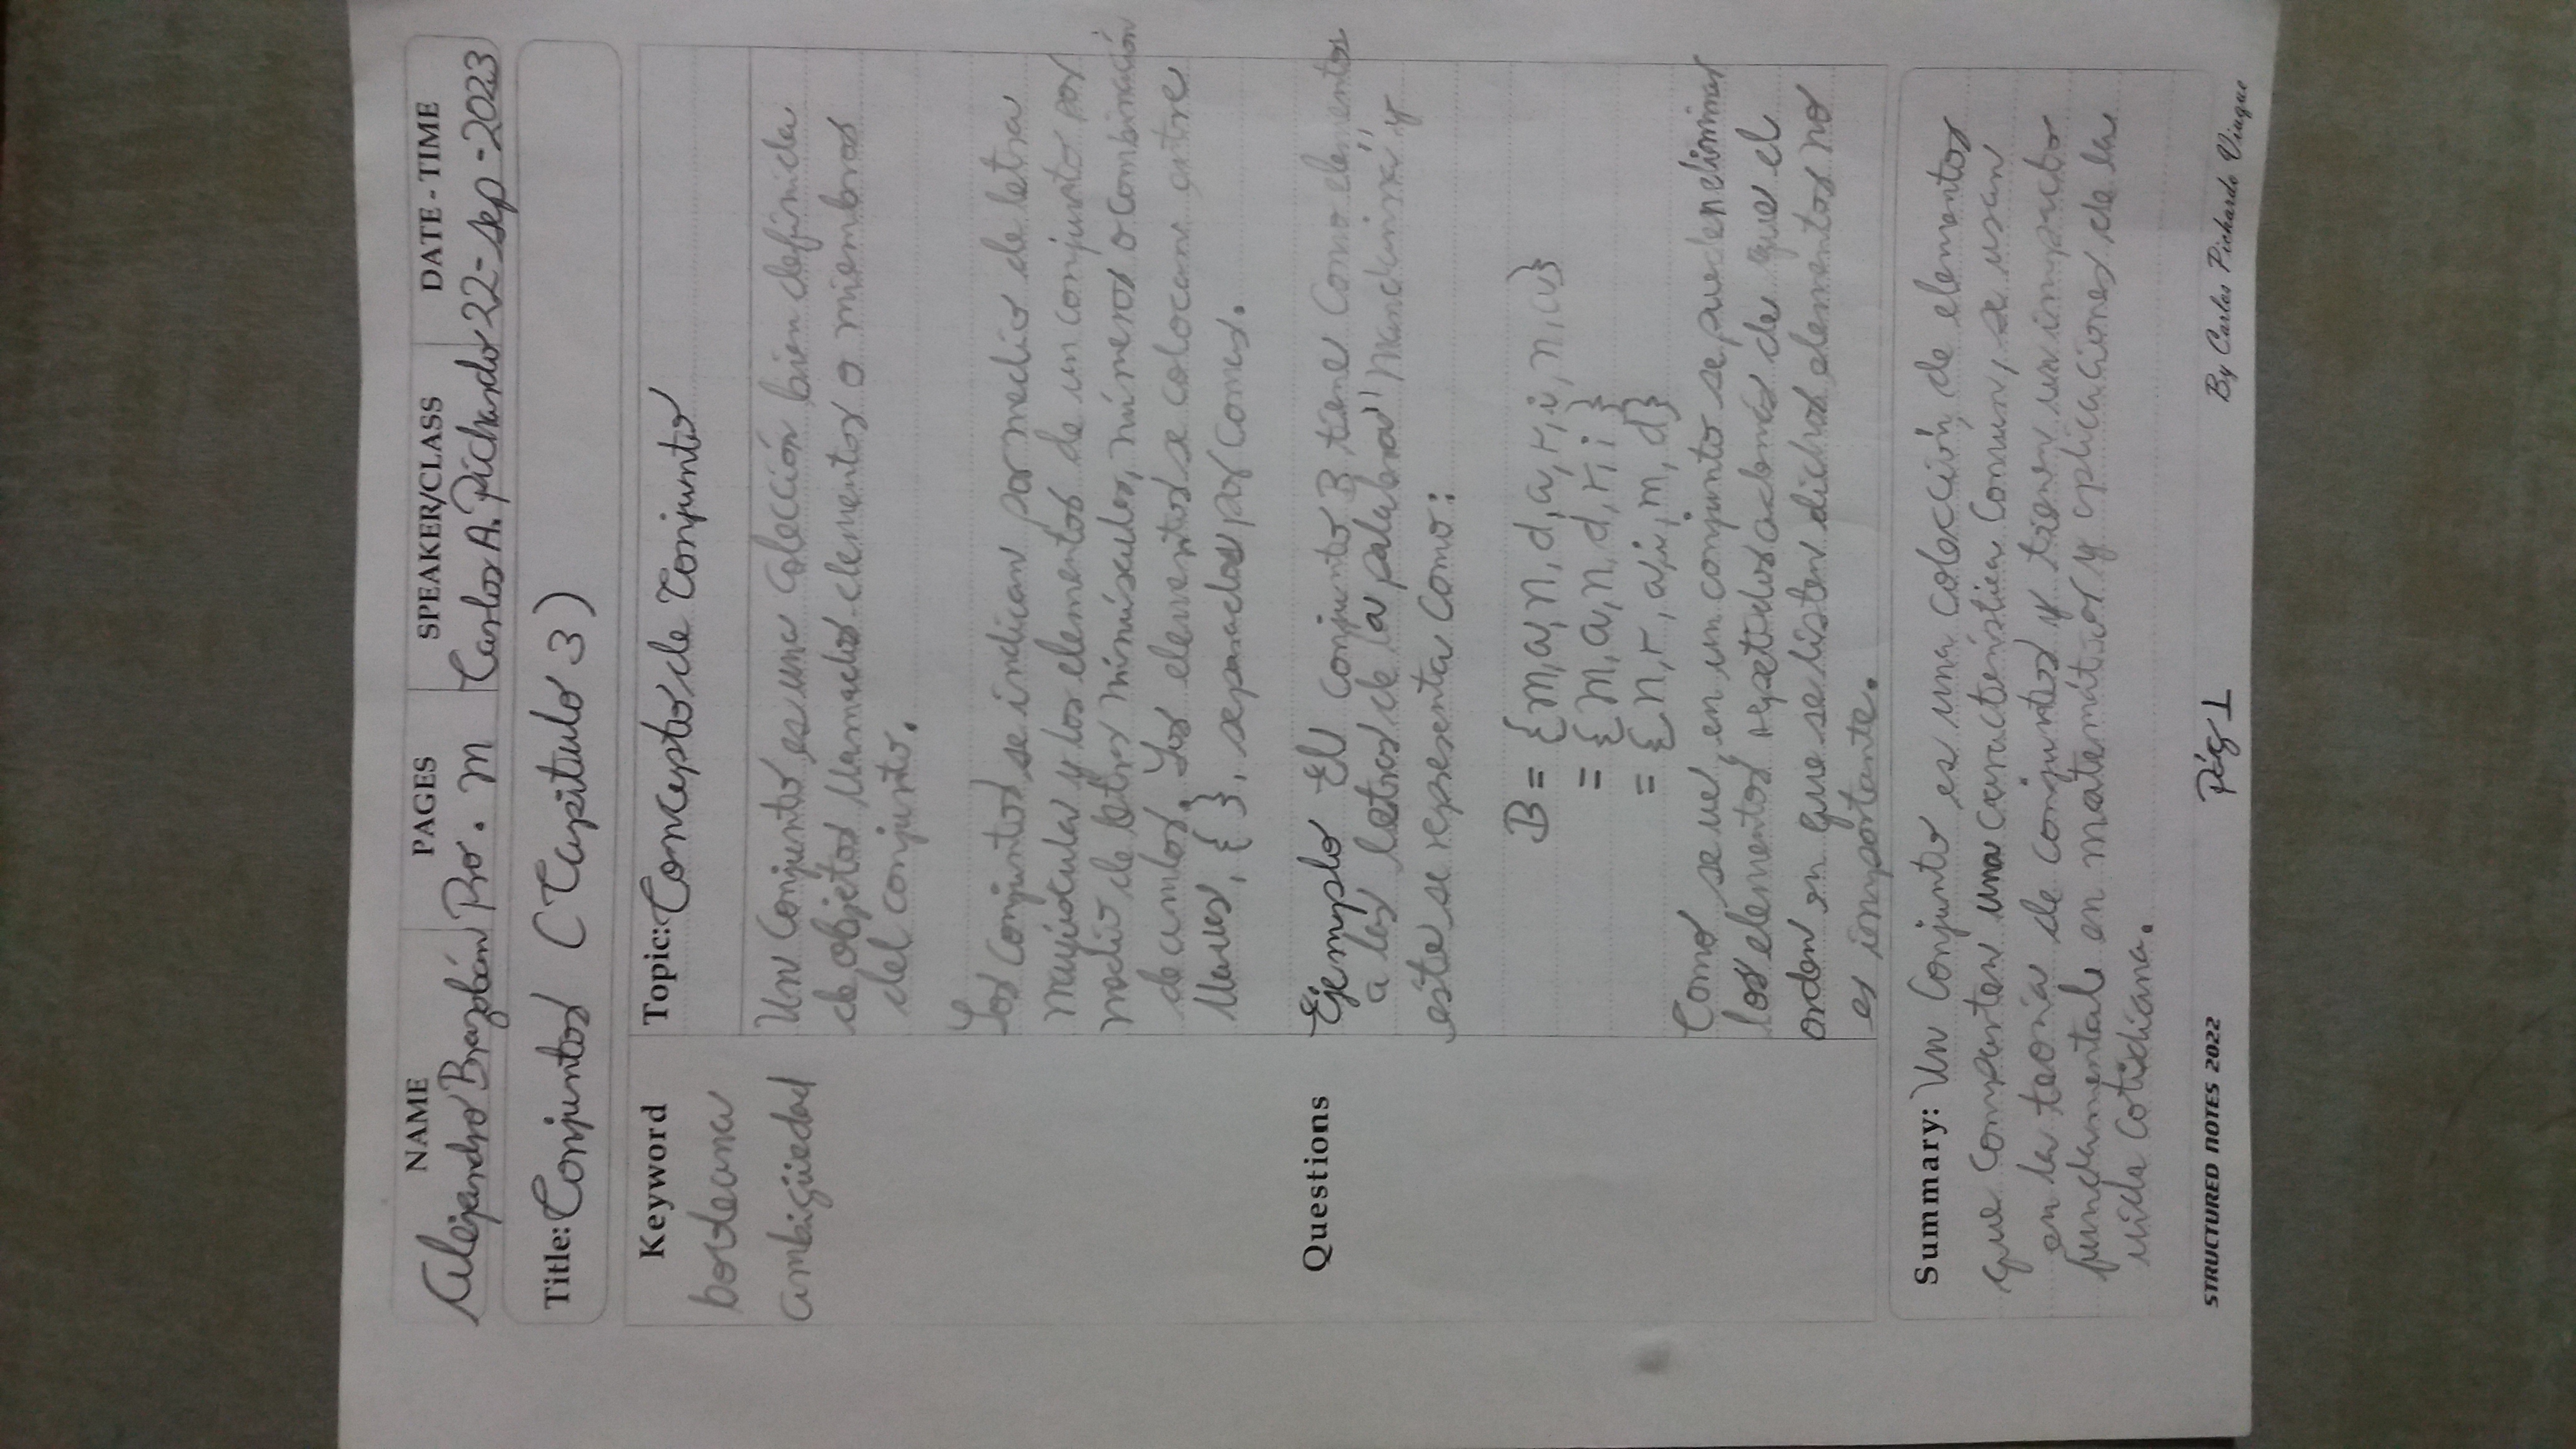 NAME PAGES SPEAKER/CLASS DATE - TIME
Alejandro Brazobán Pro. M Carlos A. Pichardo 22-sep-2023
Title: Conjuntos (Capitulo 3)
Keyword
booleana
ambigüedad
Topic: Concepto de Conjunto
Un Conjunto es una colección bien definida
de objetos llamados elementos o miembros
del conjunto.
Los conjuntos se indican por medio de letra
mayúscula y los elementos de un conjunto por
medio de letras minúsculas, números o combinación
de ambos. Los elementos se colocan entre
llaves, { }, separados por comas.
Questions
Ejemplo El conjunto B tiene como elementos
a las letras de la palabra "mandarina" y
este se representa como:
B = {m,a,n,d,a,r,i,n,a}
= {m,a,n,d,r,i}
= {n,r,a,i,m,d}
Como se ve, en un conjunto se pueden eliminar
los elementos repetidos además de que el
orden en que se listen dichos elementos no
es importante.
Summary: Un Conjunto es una colección de elementos
que comparten una característica común, se usan
en la teoría de conjuntos y tienen un impacto
fundamental en matemáticas y aplicaciones de la
vida cotidiana.
STRUCTURED NOTES 2022 Pág 1 By Carlos Pichardo Viuque